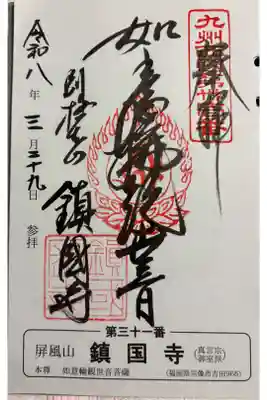 九州
奉拝
如意輪観世音
屏風山 鎮國寺
令和八年三月二十九日 参拝
第三十一番
屏風山 鎮国寺 (真言宗御室派)
本尊 如意輪観世音菩薩 (福岡県宗像市吉田966)